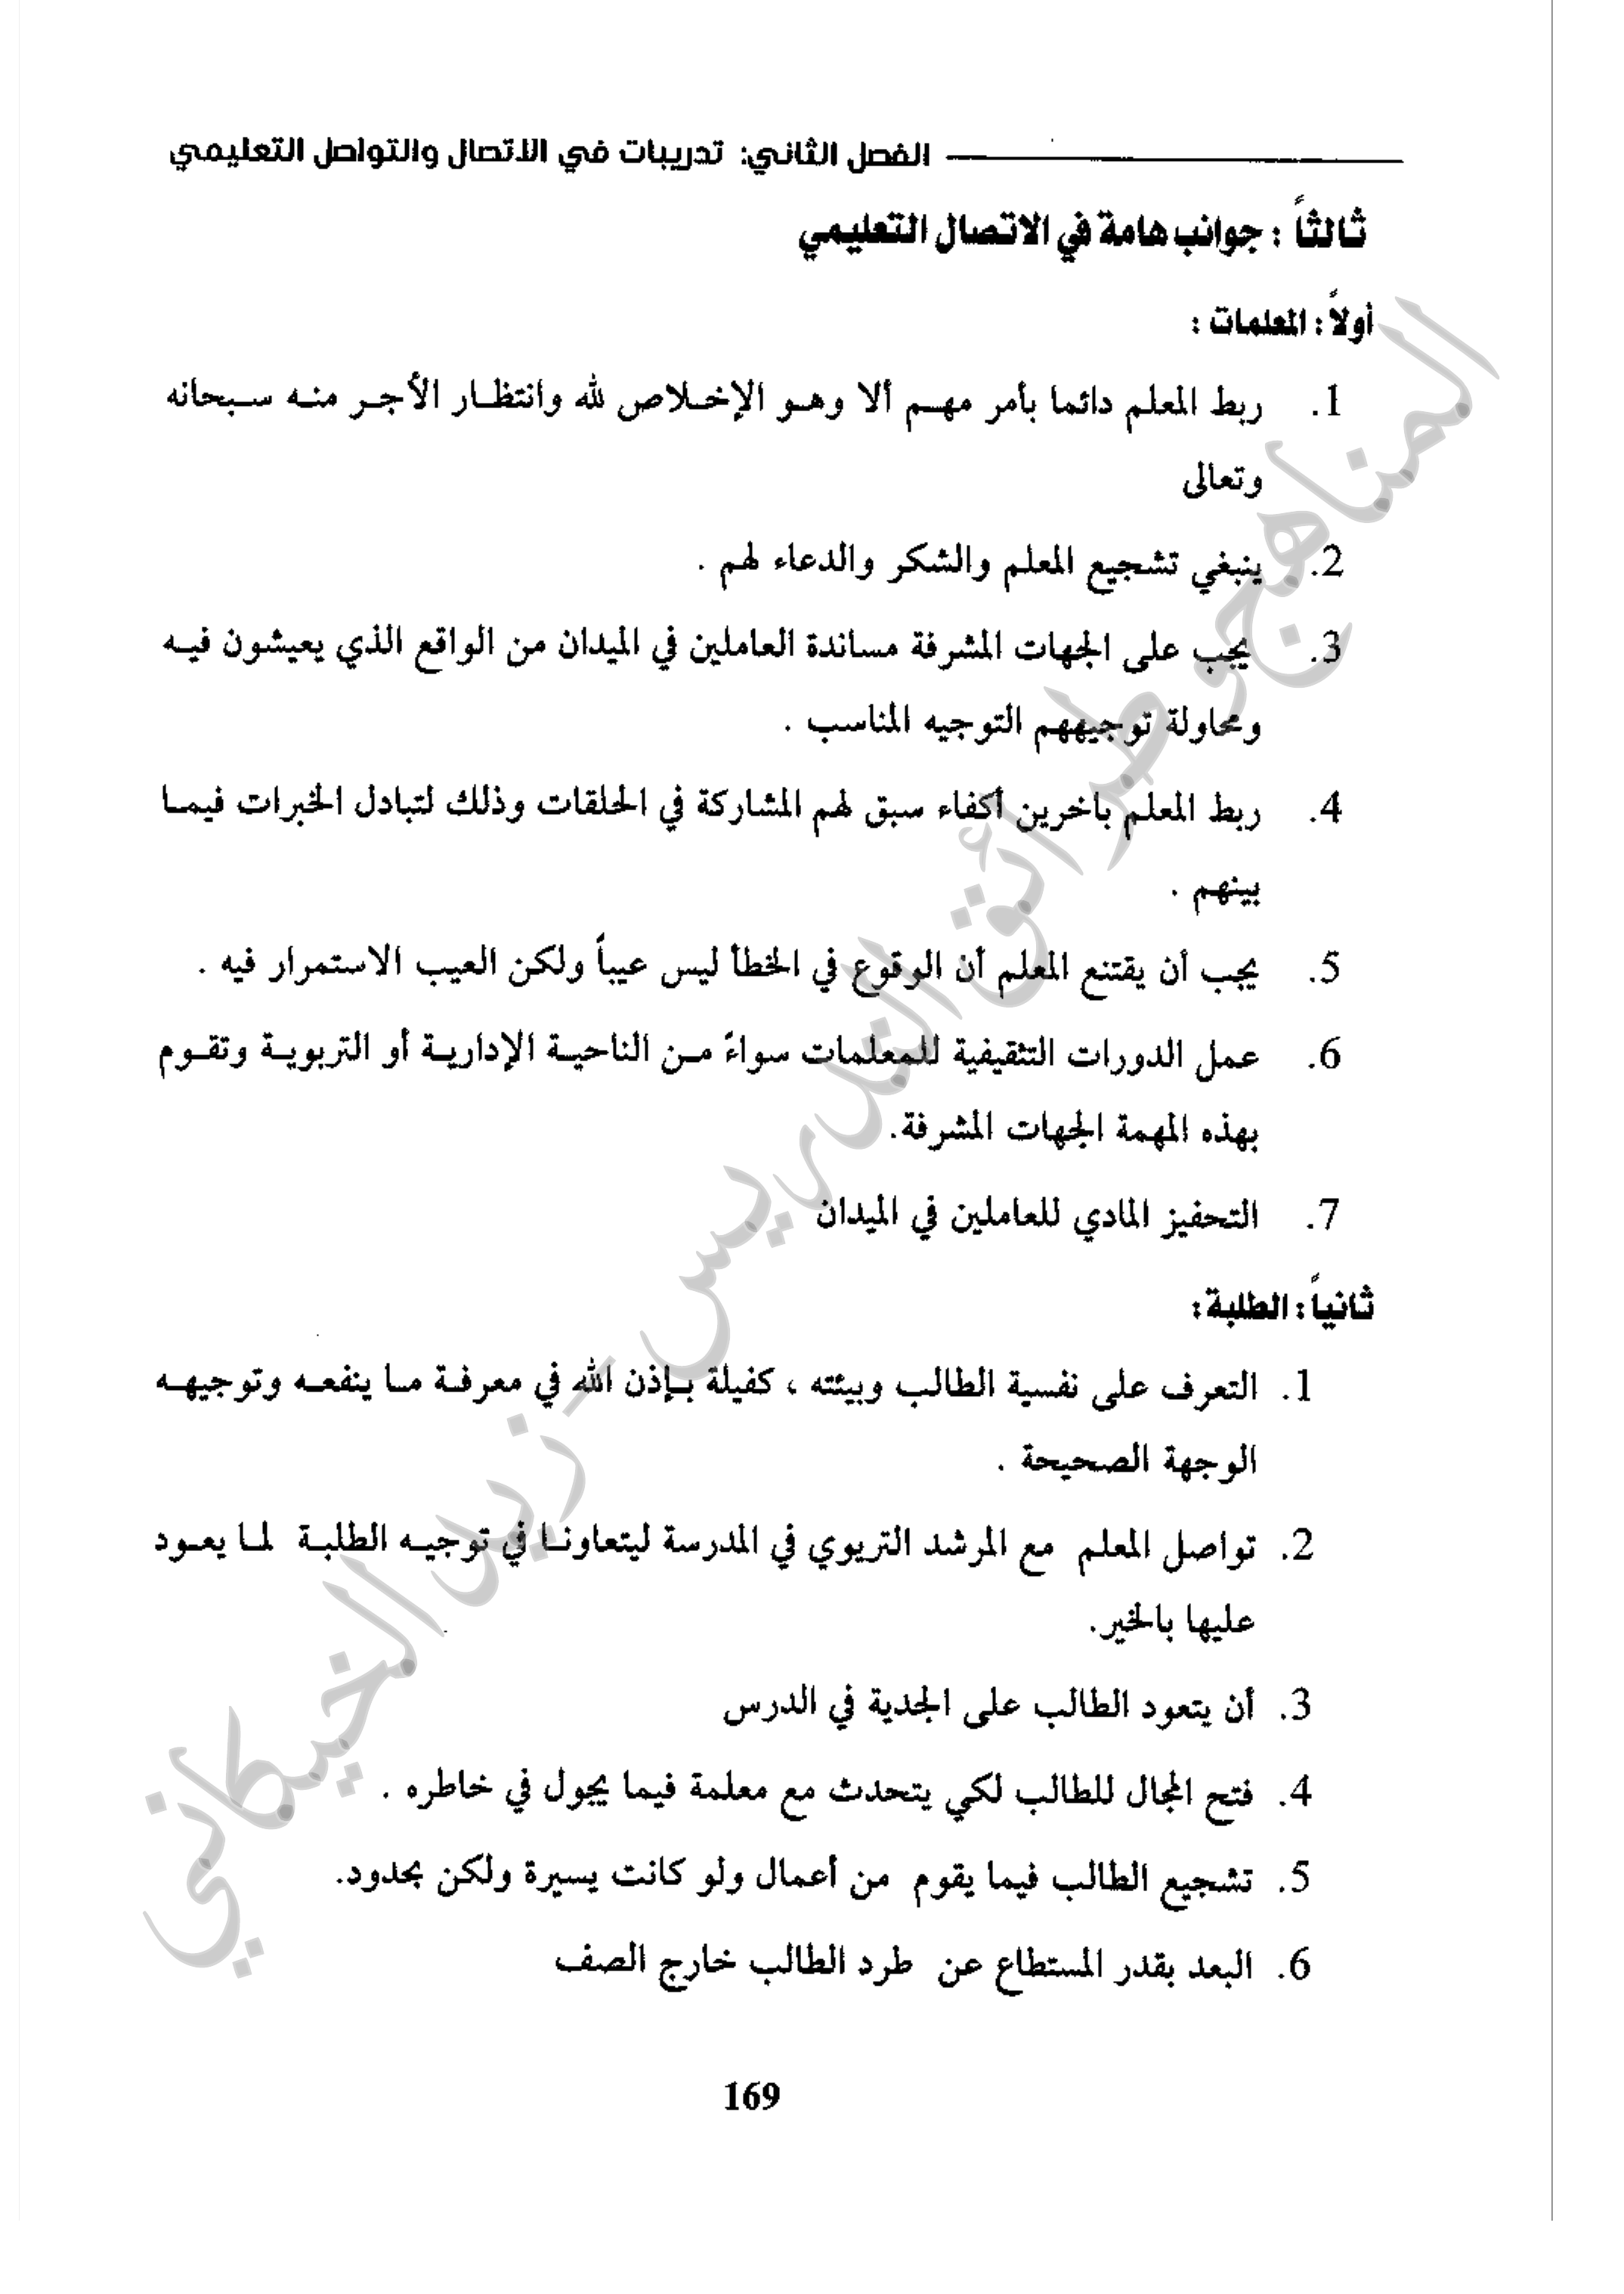 الفصل الثاني: تدريبات في الاتصال والتواصل التعليمي
ثالثاً : جوانب هامة في الاتصال التعليمي
أولاً : المعلمات :
1. ربط المعلم دائما بأمر مهم ألا وهو الإخلاص لله وانتظار الأجر منه سبحانه
وتعالى
2. ينبغي تشجيع المعلم والشكر والدعاء لهم .
3. يجب على الجهات المشرفة مساندة العاملين في الميدان من الواقع الذي يعيشون فيه
ومحاولة توجيههم التوجيه المناسب .
4. ربط المعلم بآخرين أكفاء سبق لهم المشاركة في الحلقات وذلك لتبادل الخبرات فيما
بينهم .
5. يجب أن يقتنع المعلم أن الوقوع في الخطأ ليس عيباً ولكن العيب الاستمرار فيه .
6. عمل الدورات التثقيفية للمعلمات سواءً من الناحية الإدارية أو التربوية وتقوم
بهذه المهمة الجهات المشرفة.
7. التحفيز المادي للعاملين في الميدان
ثانياً : الطلبة :
1. التعرف على نفسية الطالب وبيئته ، كفيلة بإذن الله في معرفة ما ينفعه وتوجيهه
الوجهة الصحيحة .
2. تواصل المعلم مع المرشد التربوي في المدرسة ليتعاونا في توجيه الطلبة لما يعود
عليها بالخير.
3. أن يتعود الطالب على الجدية في الدرس
4. فتح المجال للطالب لكي يتحدث مع معلمة فيما يجول في خاطره .
5. تشجيع الطالب فيما يقوم من أعمال ولو كانت يسيرة ولكن بحدود.
6. البعد بقدر المستطاع عن طرد الطالب خارج الصف
169
المناهج وطرائق التدريس - زيد الخيكاني